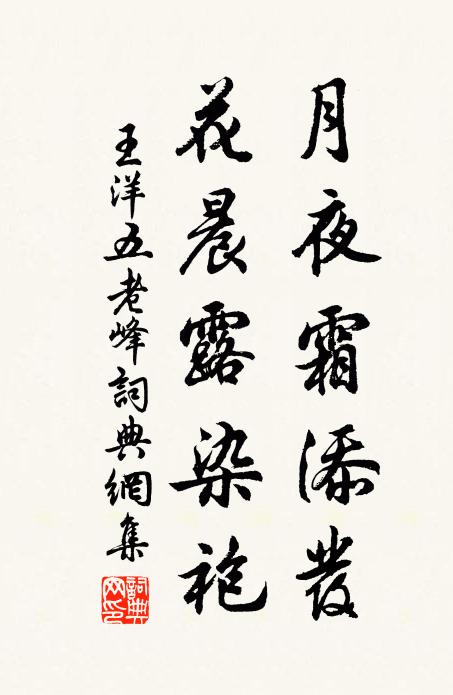 月夜霜添髮
花晨露染袍
王洋五老峰詞典網集
詞典網印